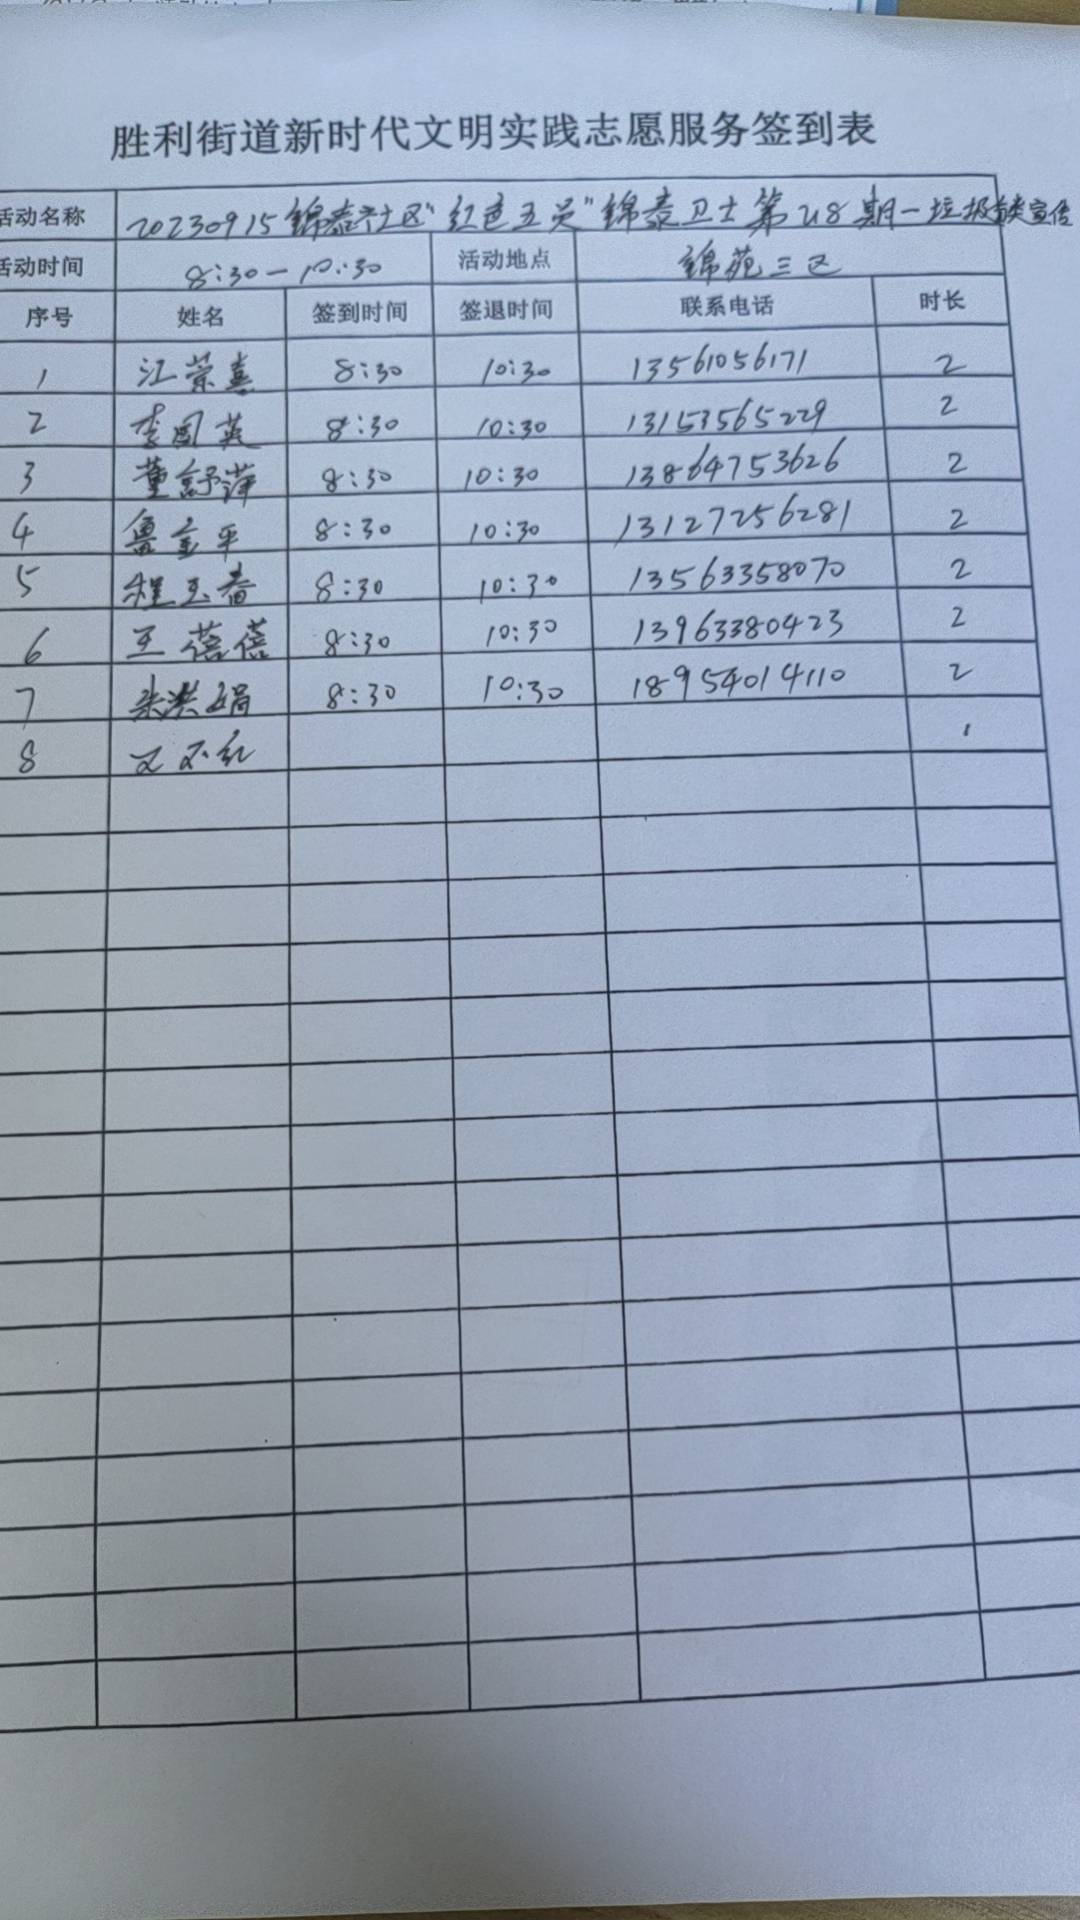 胜利街道新时代文明实践志愿服务签到表
活动名称 20230915锦泰社区"红色五员"锦泰卫士第218期—垃圾分类宣传
活动时间 8:30—10:30 活动地点 锦苑三区
序号 姓名 签到时间 签退时间 联系电话 时长
1 江荣喜 8:30 10:30 13561056171 2
2 李国英 8:30 10:30 13153565229 2
3 董舒萍 8:30 10:30 13864753626 2
4 鲁金平 8:30 10:30 13127256281 2
5 程玉春 8:30 10:30 13563358070 2
6 王蓓蓓 8:30 10:30 13963380423 2
7 朱洪娟 8:30 10:30 18954014110 2
8